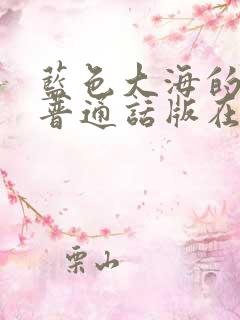 藍色大海的
普通話版在
栗山